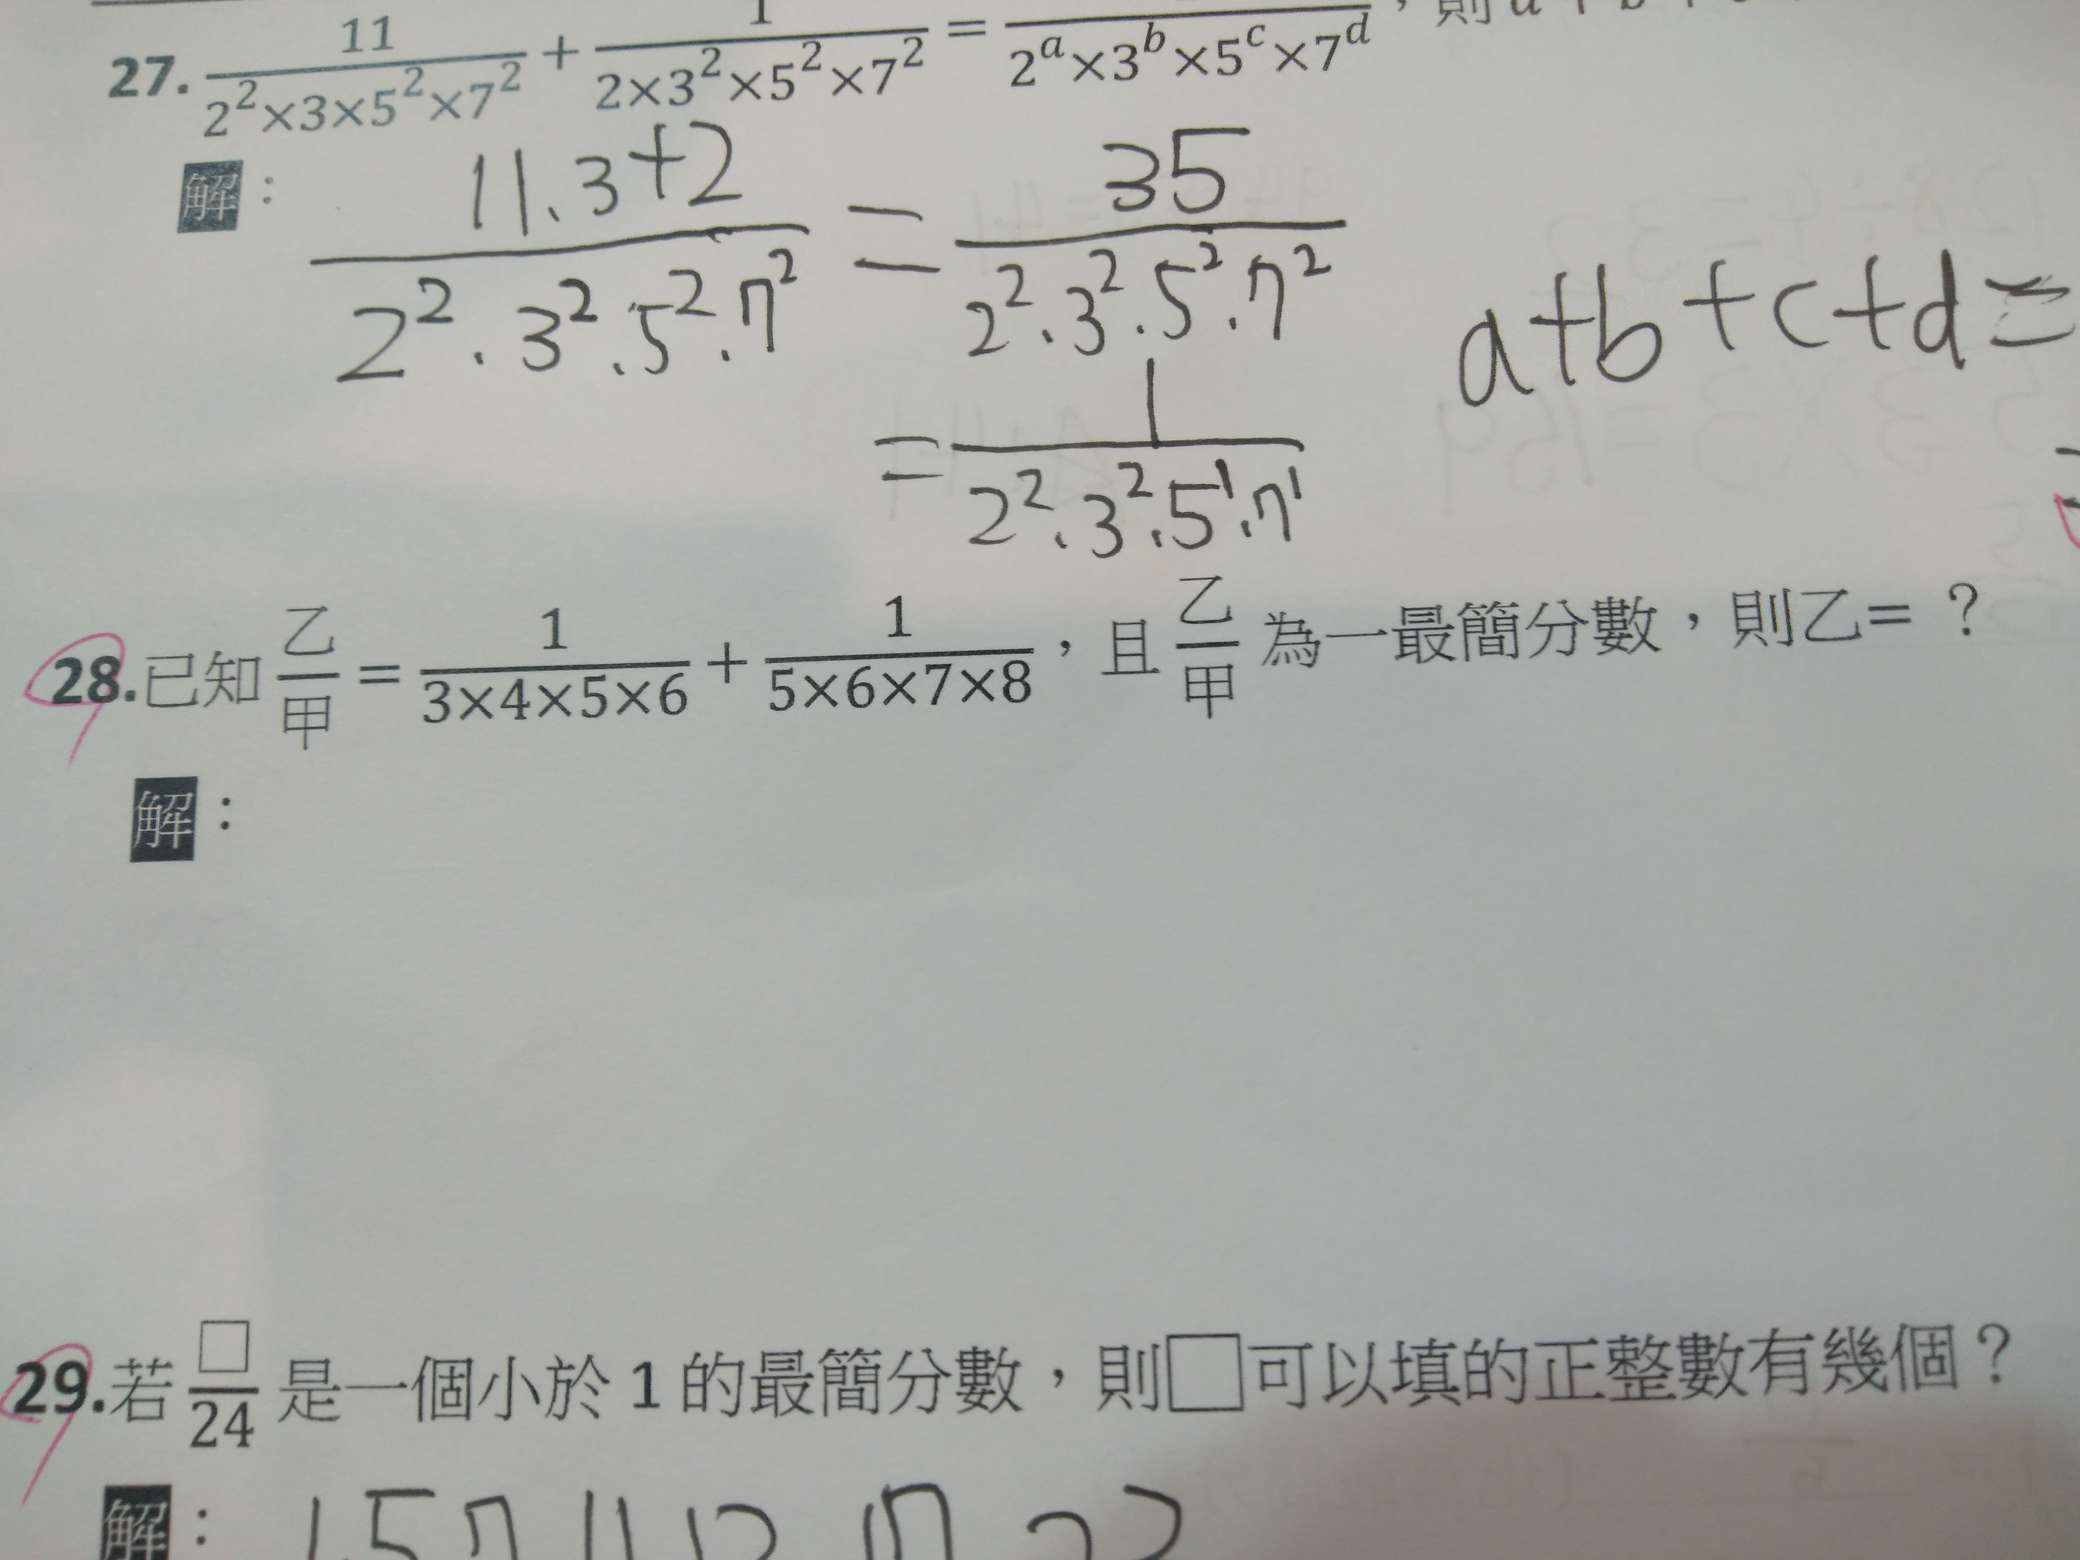 27. 11/(2²×3×5²×7²) + 1/(2×3²×5²×7²) = /(2ᵃ×3ᵇ×5ᶜ×7ᵈ)，則a+b+
解： (11.3+2)/(2².3².5².7²) = 35/(2².3².5².7²) a+b+c+d=
= 1/(2².3².5¹.7¹)
28.已知 乙/甲 = 1/(3×4×5×6) + 1/(5×6×7×8)，且 乙/甲 為一最簡分數，則乙=？
解：
29.若 □/24 是一個小於 1 的最簡分數，則□可以填的正整數有幾個？
解： 1 5 7 11 13 17